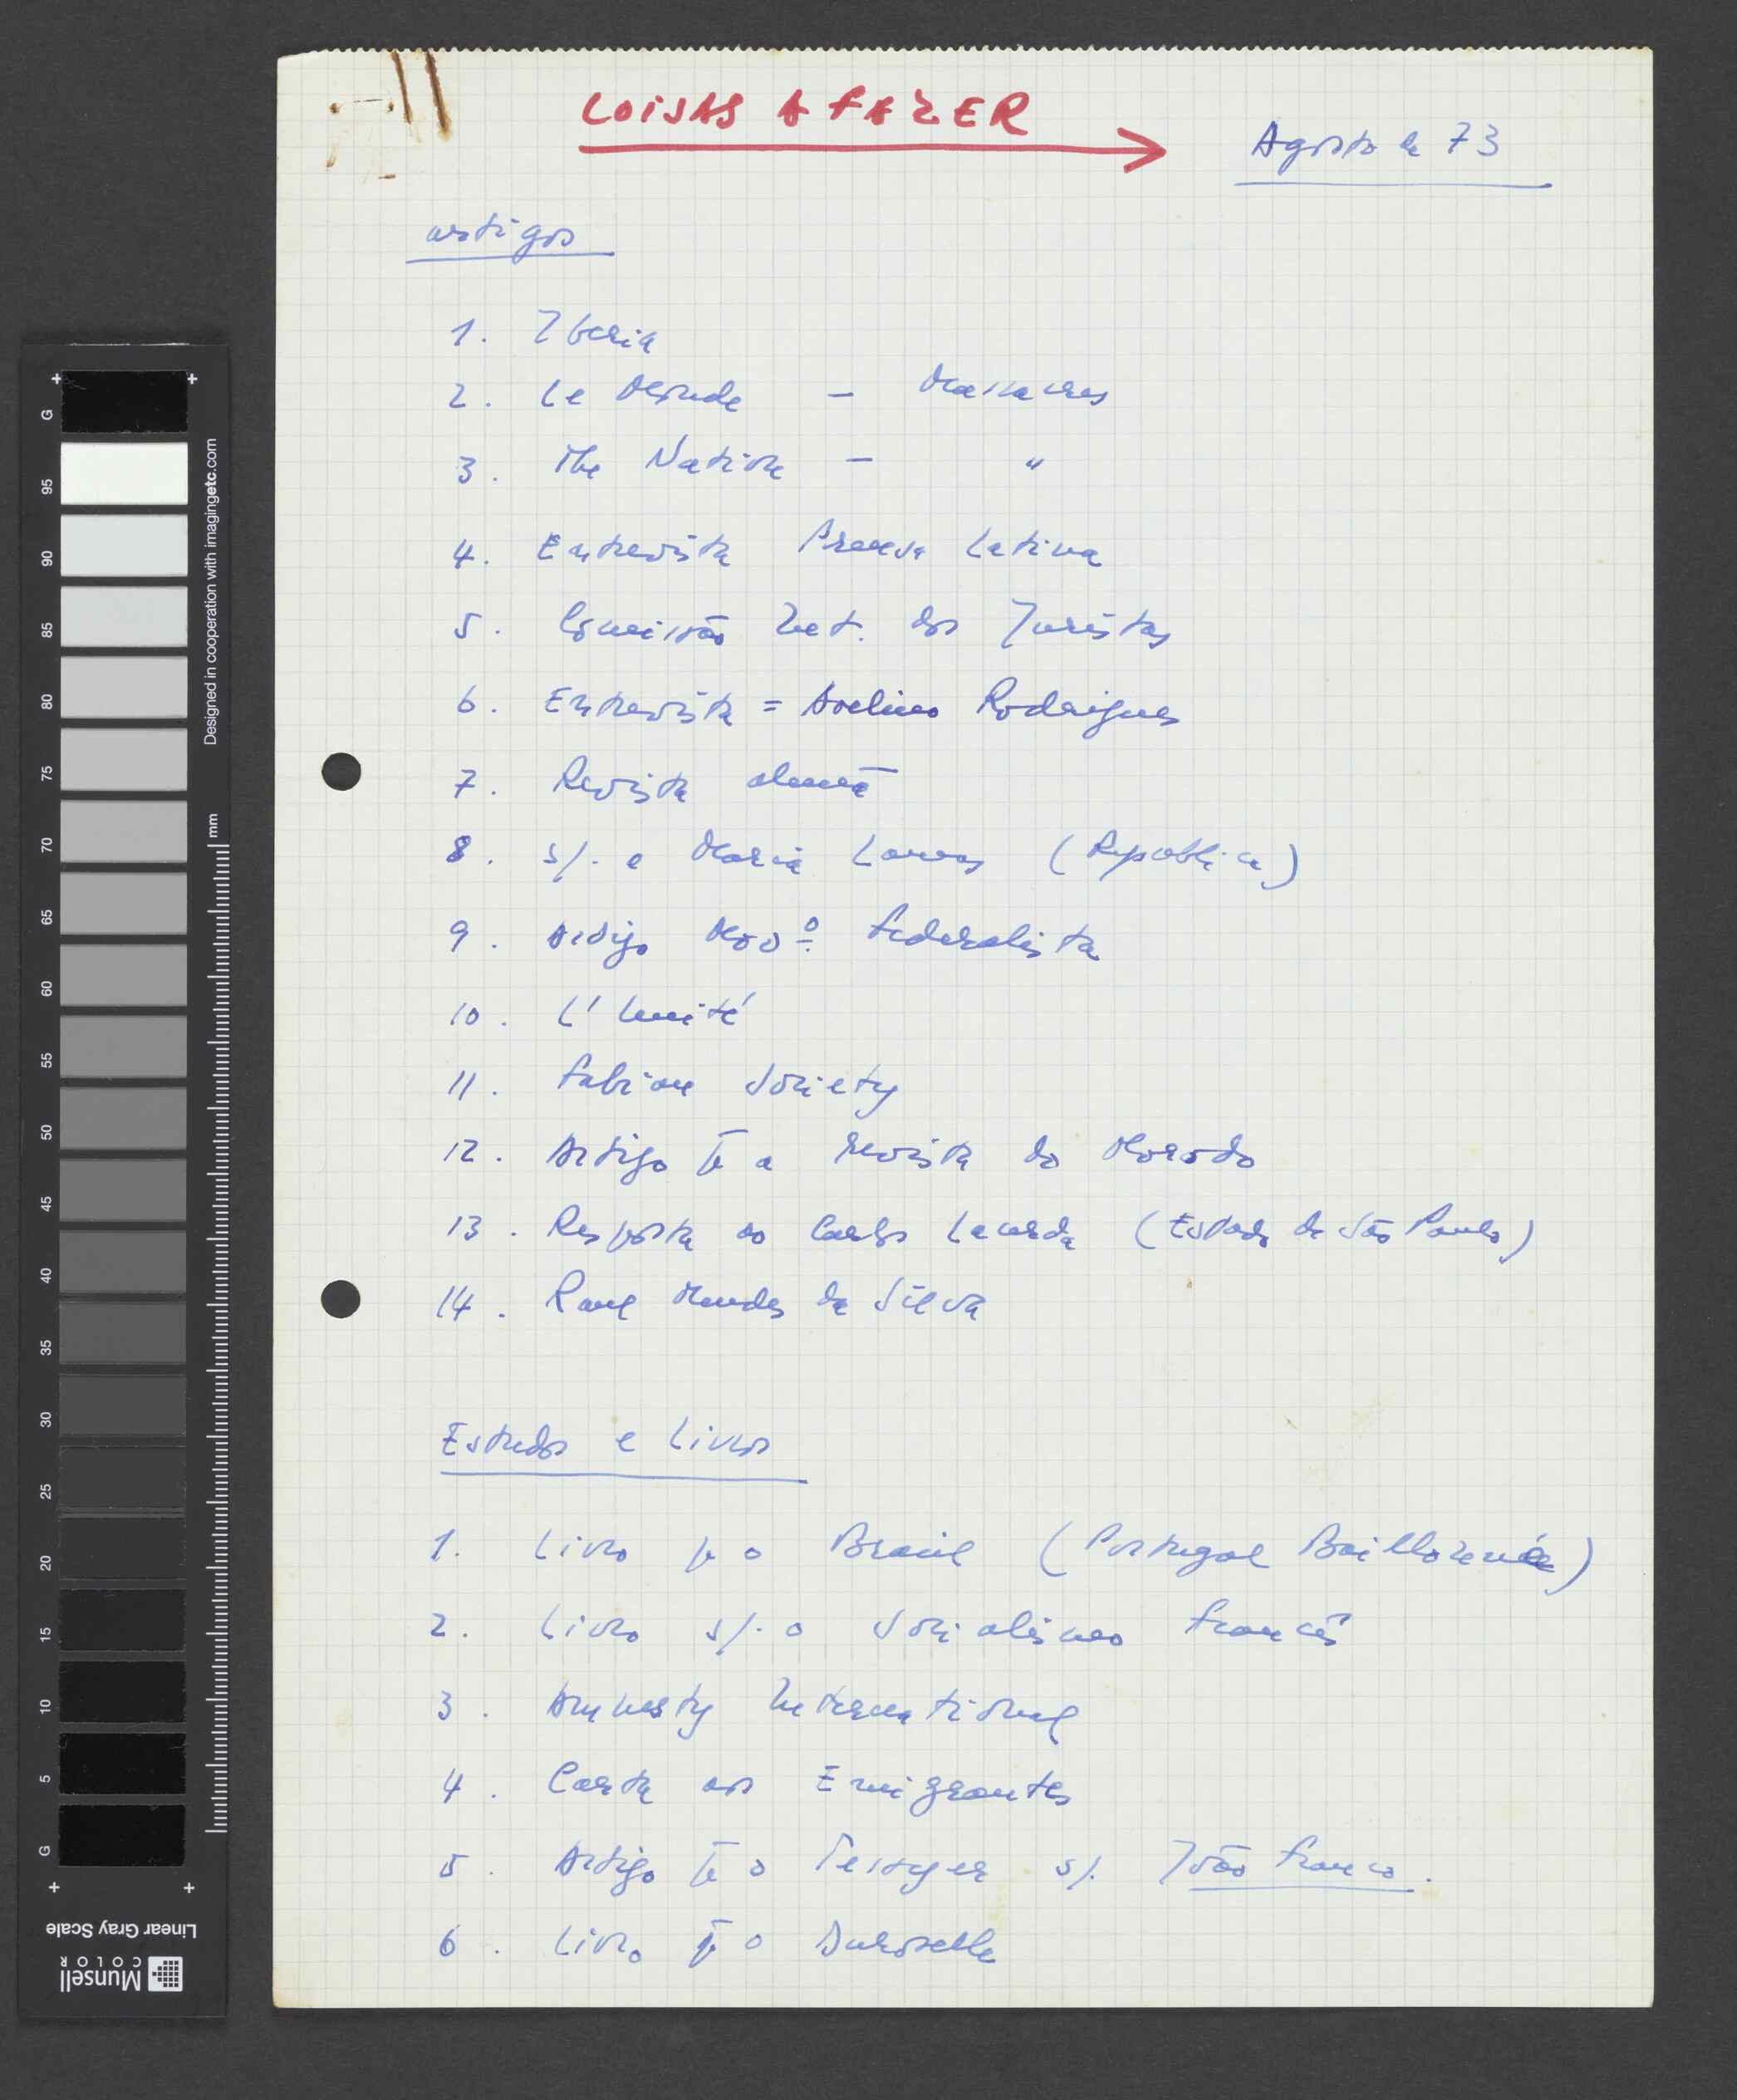 COISAS A FAZER
Agosto de 73
artigos
1. Iberia
2. Le Monde - Massacres
3. The Nation - "
4. Entrevista Prensa Latina
5. Comissão Int. dos Juristas
6. Entrevista = Avelino Rodrigues
7. Revista alemã
8. s/. a Maria Lamas (República)
9. Artigo Movº Federalista
10. L'Unité
11. Fabian Society
12. Artigo p a revista do
13. Resposta ao Carlos Lacerda (Estado de São Paulo)
14. Raul Mendes da Silva
Estudos e Livros
1. Livro p o Brasil (Portugal Baillonné)
2. Livro s/. o Socialismo francês
3. Amnesty International
4. Carta aos Emigrantes
5. Artigo p o s/. João Franco.
6. Livro p o Duroselle
G
95
90
85
80
75
70
65
60
55
50
45
40
35
30
25
20
15
10
5
G
Designed in cooperation with imagingetc.com
mm
Linear Gray Scale
Munsell
COLOR